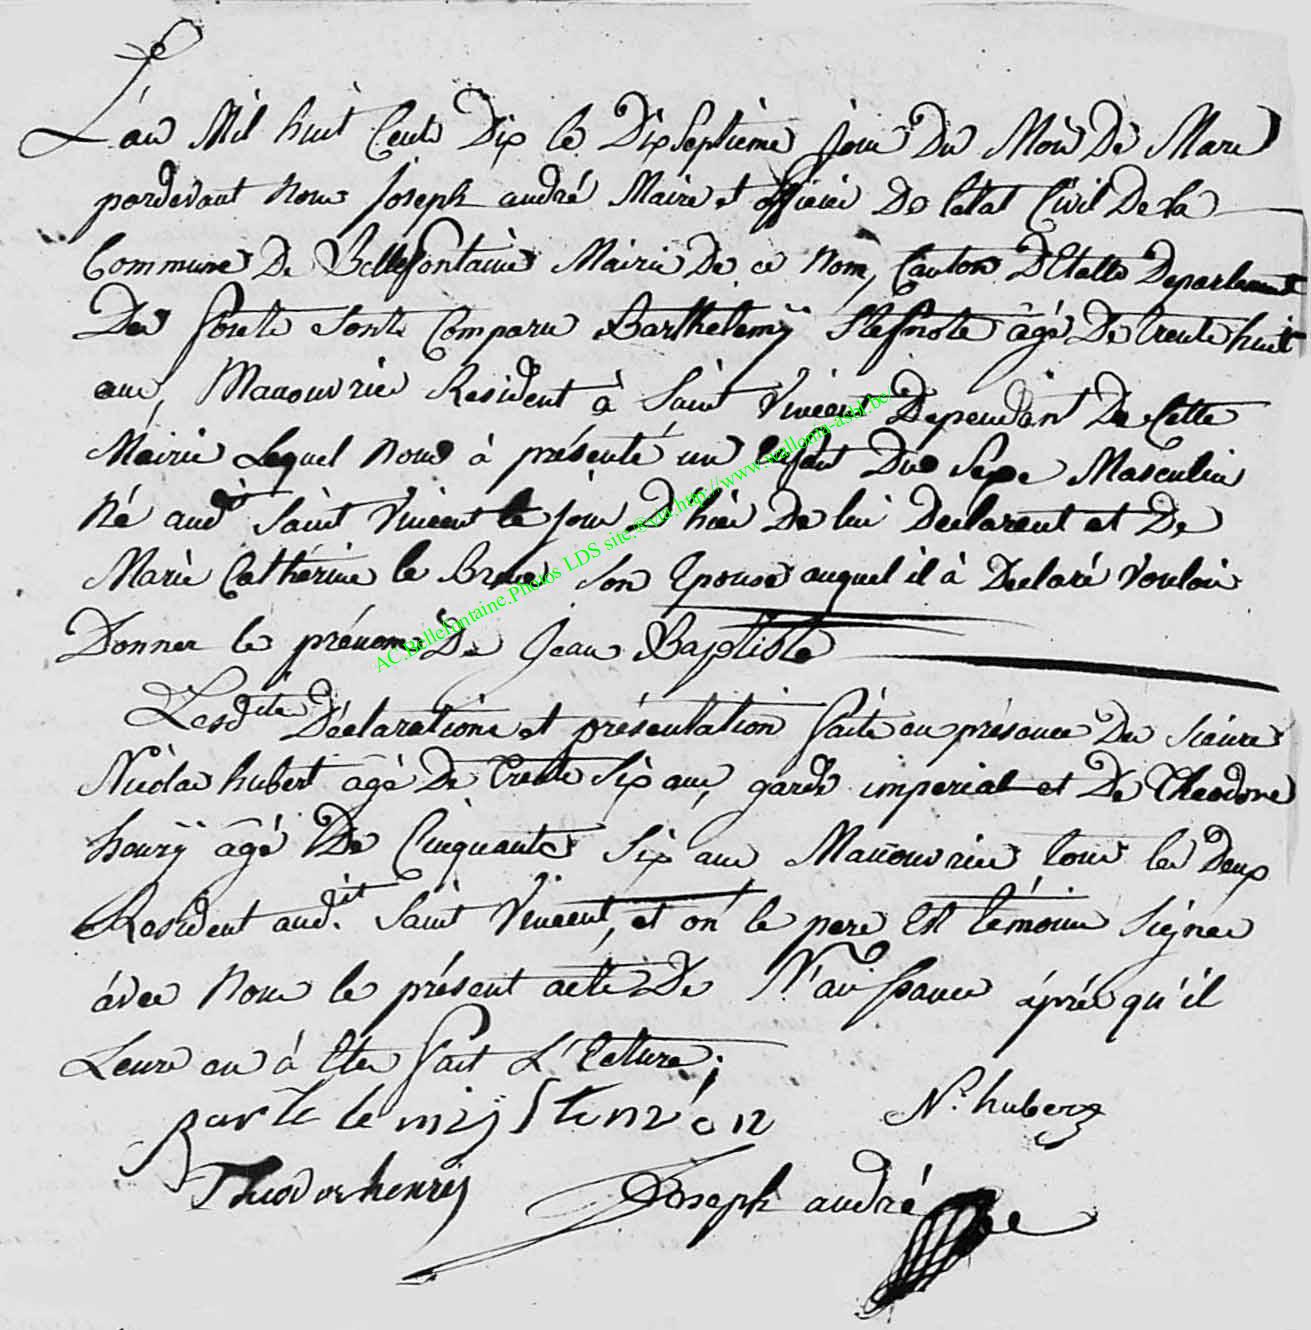 L'an Mil huit Cents Dix le Dixseptieme Jour Du Mois De Mars
pardevant nous Joseph andré Maire et officier De L'etat Civil De la
Commune De Bellefontaine Mairie De ce Nom, Canton D'Etalle Departement
Des forets
Comparu Barthelemÿ âgé De trente huit
ans, Manouvrier Resident à Saint Vincent Dependant De Cette
Mairie Lequel nous à présenté un Enfant Du Sexe Masculin
Né aud.it Saint Vincent le jour D'hier De lui Declarent et De
Marie Catherine le Brun son Epouse auquel il à Declaré Vouloir
Donner le prénom De Jean Baptiste
Lesdite Déclarations et présentation faite en présence Des sieurs
Nicolas hubert agé De trente Six ans, garde imperial et De Theodore
henrÿ âgé De Cinquante Six ans Manouvrier tous les Deux
Resident aud.it Saint Vincent, et ont le pere Et témoins Signer
avec nous le présent acte De Naissance áprés qu'il
Leurs en à Eter fait L'Ecture;
N. hubert
Theodor henrij
Joseph andré
AC.Bellefontaine.Photos LDS site.®via.http://www.wallonia-asbl.be/